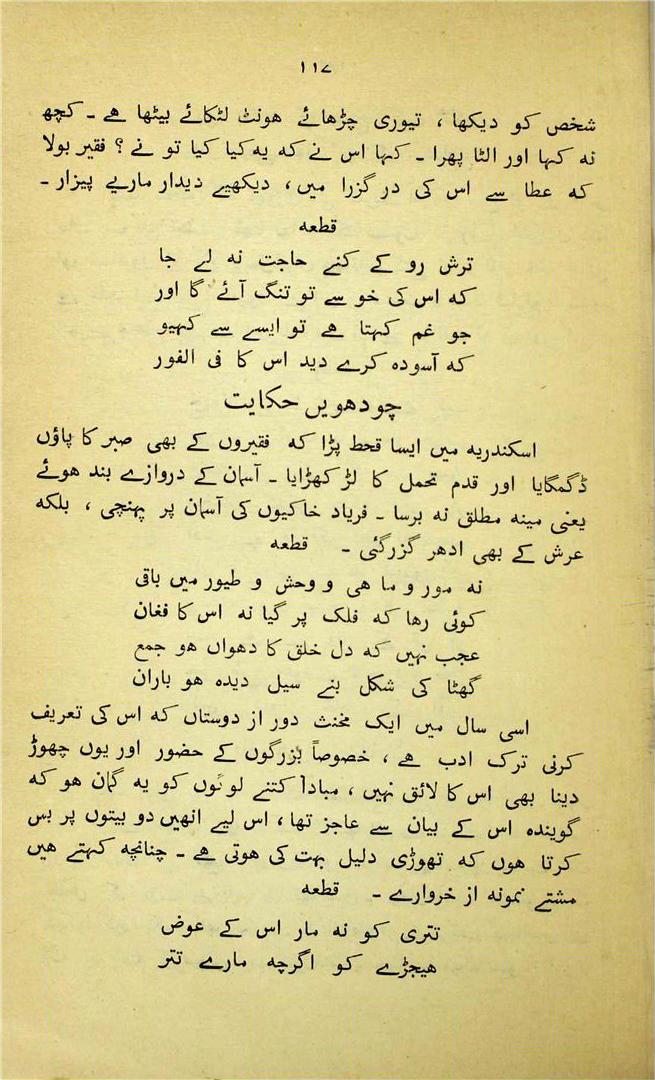 ۱۱۷
شخص کو دیکھا ، تیوری چڑھائے هونٹ لٹکائے بیٹھا ہے ۔ کچھ
نہ کہا اور الٹا پھرا ۔ کہا اس نے کہ یہ کیا کیا تو نے ؟ فقیر بولا
کہ عطا سے اس کی در گزرا میں ، دیکھیے دیدار ماریے پیزار ۔
قطعه
ترش رو کے کنے حاجت نہ لے جا
کہ اس کی خو سے تو تنگ آئے گا اور
جو غم کہتا ہے تو ایسے سے کہیو
کہ آسودہ کرے دید اس کا فی الفور
چودھویں حکایت
اسکندریه میں ایسا قحط پڑا کہ فقیروں کے بھی صبر کا پاؤں
ڈگمگایا اور قدم تحمل کا لڑکھڑایا ۔ آسمان کے دروازے بند هوئے
یعنی مینه مطلق نہ برسا ۔ فریاد خاکیوں کی آسمان پر پہنچی ، بلکہ
عرش کے بھی ادھر گزر گئی ۔ قطعه
نہ مور و ما هی و وحش و طیور میں باقی
کوئی رہا کہ فلک پر گیا نہ اس کا فغان
عجب نہیں کہ دل خلق کا دھواں هو جمع
گھٹا کی شکل بنے سیل دیدہ هو باران
اسی سال میں ایک مخنث دور از دوستاں کہ اس کی تعریف
کرنی ترک ادب ہے ، خصوصاً بزرگوں کے حضور اور یوں چھوڑ
دینا بھی اس کا لائق نہیں ، مبادا کتنے لوگوں کو یہ گمان هو کہ
گویندہ اس کے بیان سے عاجز تھا ، اس لیے انھیں دو بیتوں پر بس
کرتا هوں کہ تھوڑی دلیل بہت کی هوتی ہے ۔ چنانچہ کہتے هیں
مشتے نمونہ از خروارے ۔ قطعه
تتری کو نہ مار اس کے عوض
هیجڑے کو اگرچہ مارے تتر